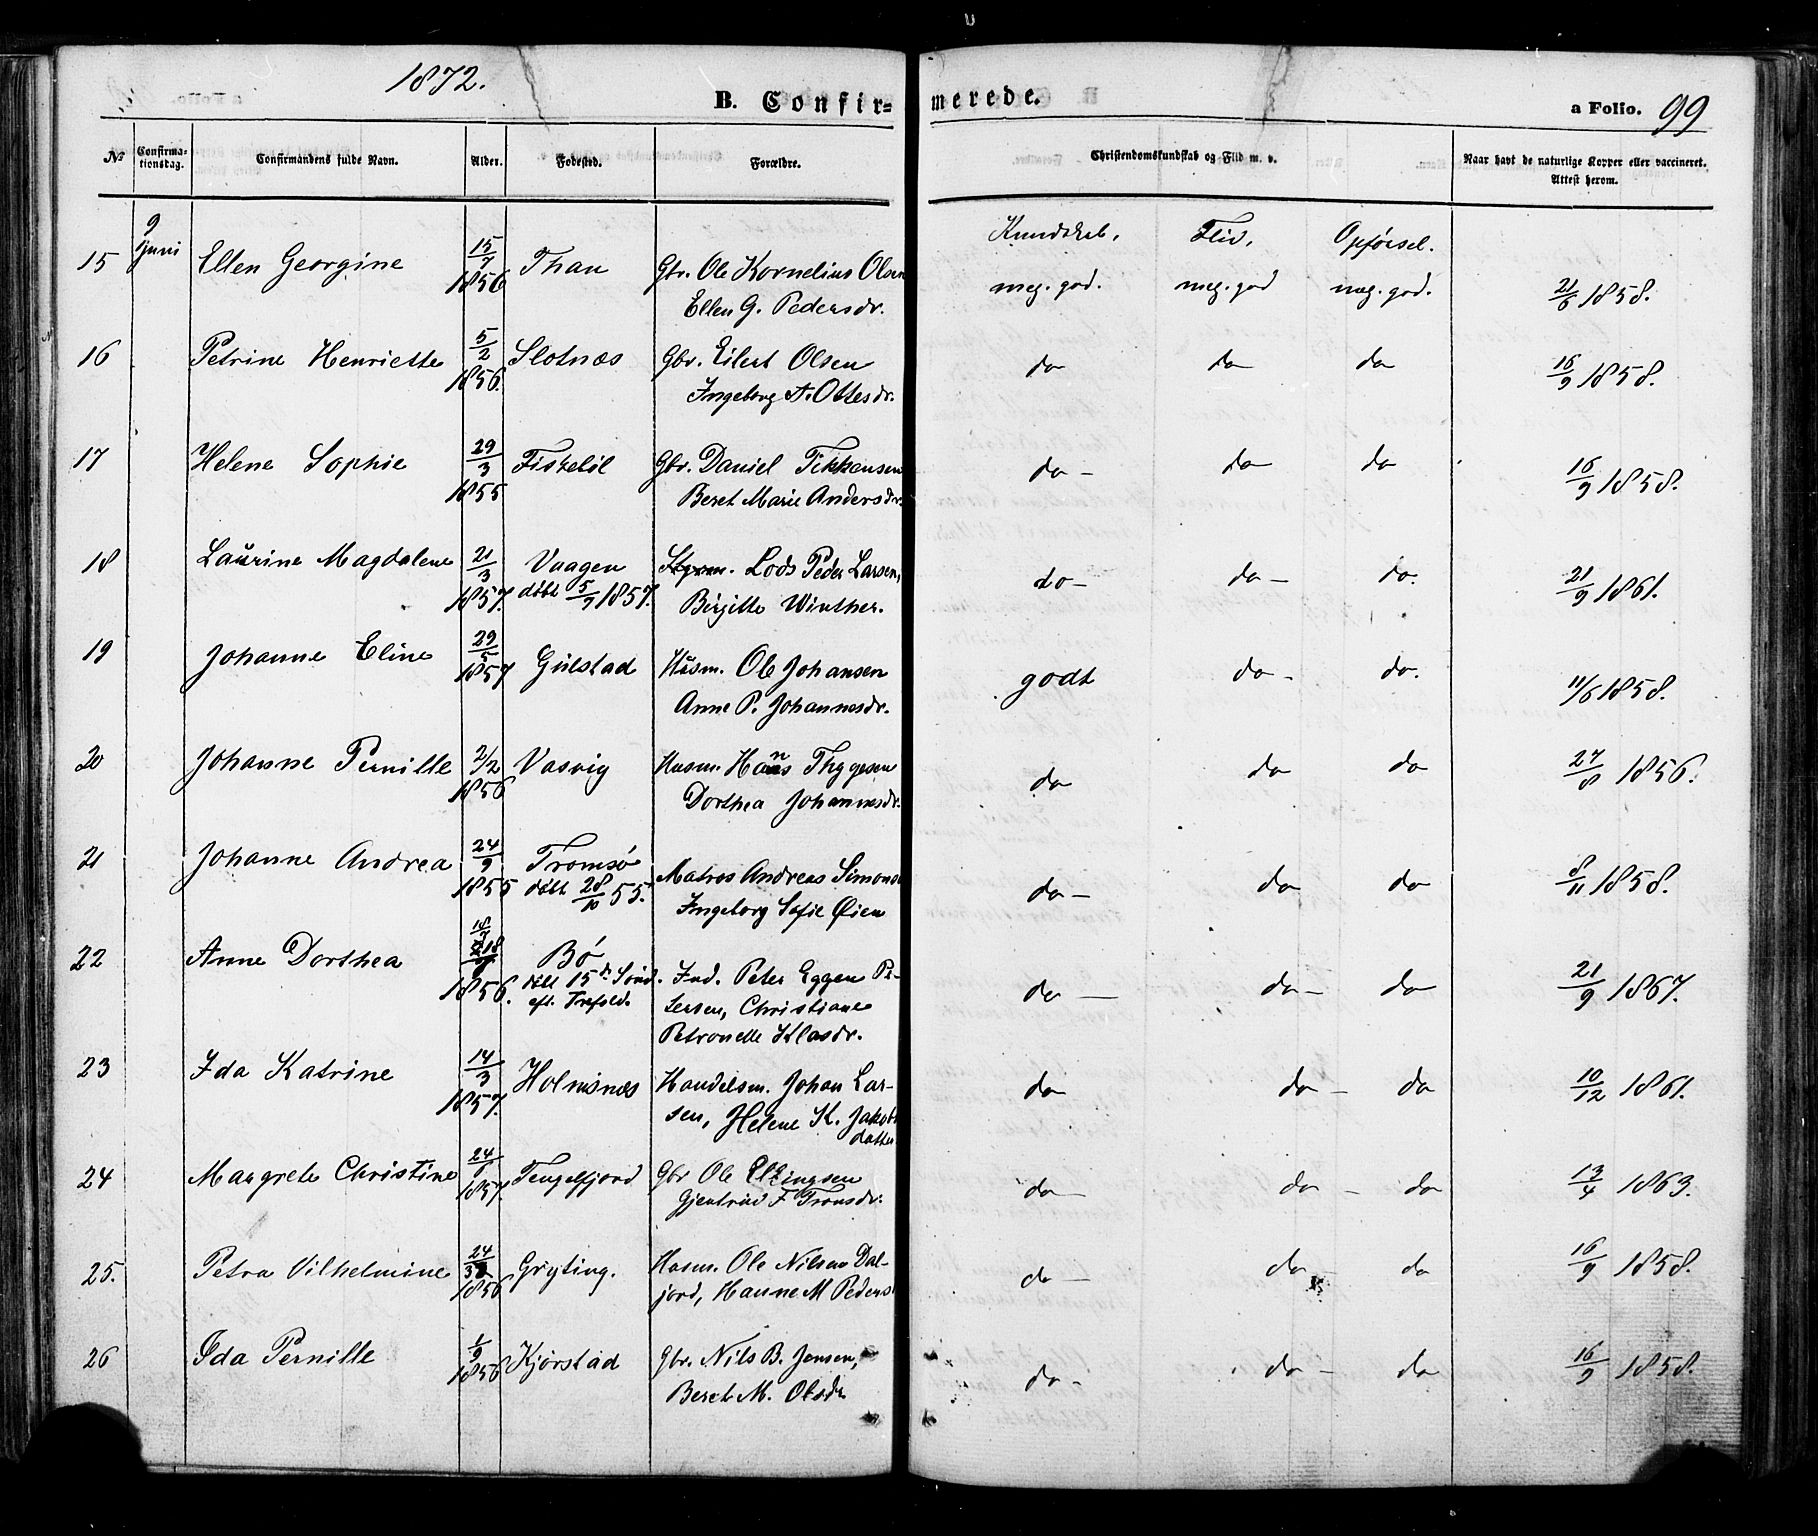 1872.
B. Confir=
merede.
a Folio. 99
No
Confirma-
tionsdag.
Confirmandens fulde Navn.
Alder.
Fødested.
Forældre.
Christendomskundskab og Flid m. v.
Naar havt de naturlige Kopper eller vaccineret.
Attest herom.
9
Juni
Kundskab, Flid, Opførsel.
15 Ellen Georgine 15/7 1856 Than Gbr. Ole Kornelius Olsen
Ellen G. Pedersdr.
meg. god. meg. god meg. god. 21/6 1858.
16 Petrine Henriette 5/2 1856. Slotnæs Gbr. Eilert Olsen
Ingeborg A. Ottesdr.
do do do 16/9 1858.
17 Helene Sophie 29/3 1855 Fiskebøl Gbr. Daniel Tikkansen
Beret Marie Andersdr.
do - do do 16/9 1858.
18 Laurine Magdalene 21/3 1857. Vaagen Lods Peder Larsen,
døbt 5/7 1857. Birgitte Winther.
do - do - do. 21/9 1861.
19 Johanne Eline 29/5 1857 Gulstad Husm. Ole Johansen
Anne P. Johannesdr.
godt do - do. 11/6 1858.
20 Johanne Pernille 2/2 1856 Vasvig Husm. Hans Thygesen
Dorthea Johannesdr.
do do do 27/8 1856.
21 Johanne Andrea 24/9 1855 Tromsø Matros Andreas Simons
døbt 28/10 55. Ingeborg Sofie Øien
do - do do 8/11 1858.
22 Anne Dorthea 18/7 1856. Bø
døbt 15de Sønd. Ind. Peter Eggen Pe-
eft. Trefold. tersen, Christiane
Petronelle Klasdr.
do - do - do 21/9 1867.
23 Ida Katrine 14/3 1857. Holmsnæs Handelsm. Johan Lar-
sen, Helene K. Jakobs
datter
do do - do 10/12 1861.
24 Margrete Christine 1857. Tengelfjord Gbr Ole Ellingsen
Gjertrud F Tronsdr.
do - do - do 13/4 1863.
25. Petra Vilhelmine 1856 Gryting. Husm. Ole Nilsen Dal-
jord, Hanne M Peders
do - do - do 16/9 1858.
26 Ida Pernille 1/9 1856 Kjørstad Gbr. Nils B. Jensen,
Beret M. Olsdr
do - do - do 16/9 1858.